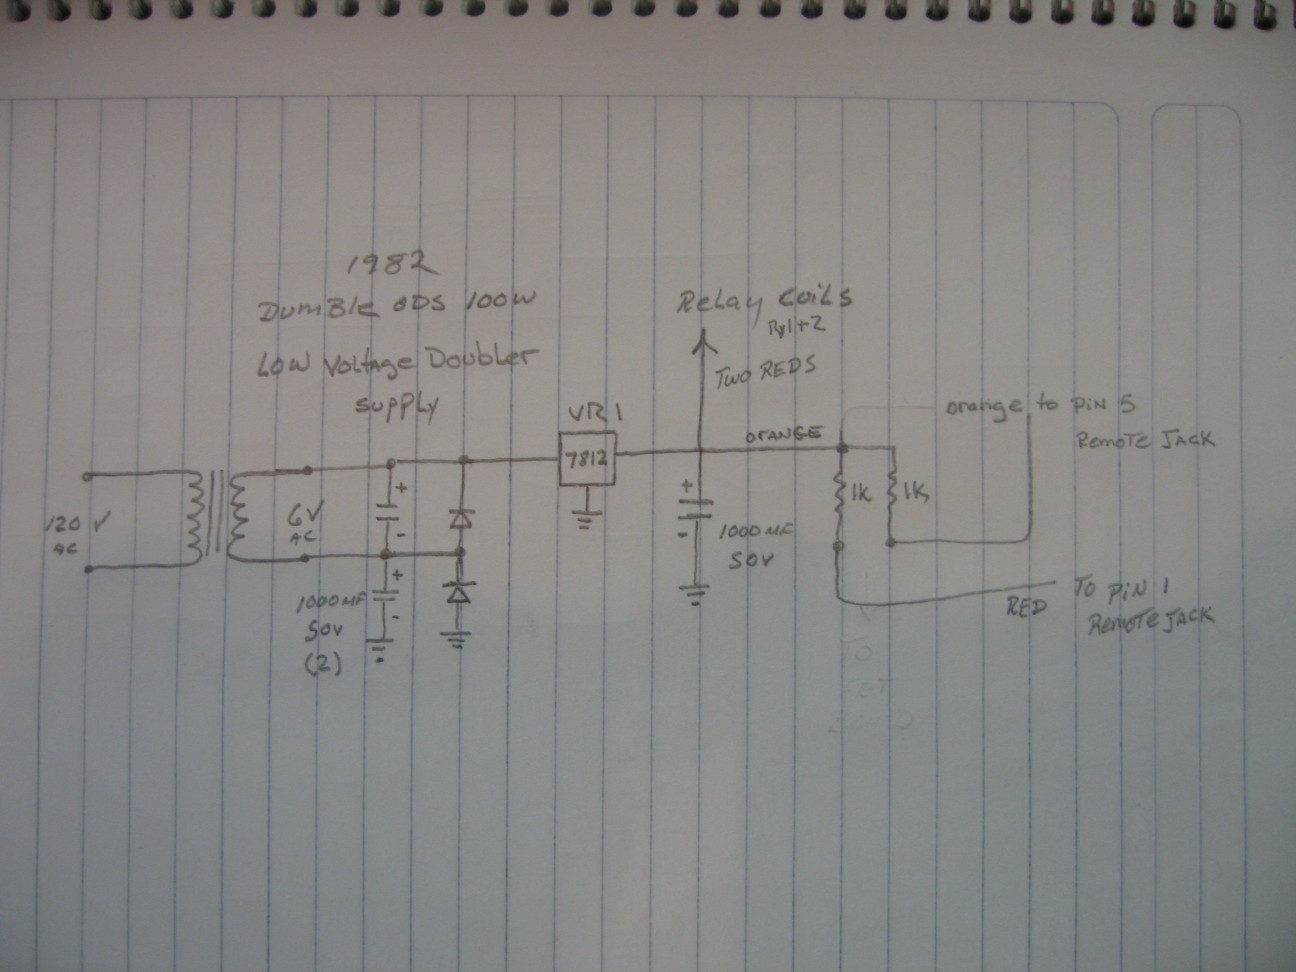 1982
Dumble ODS 100W
Low Voltage Doubler
Supply
Relay Coils
Ry1+2
Two REDS
VR1
7812
ORANGE
orange to Pin 5
Remote Jack
120 V
AC
6V
AC
+
-
+
-
1000MF
50V
(2)
+
-
1000MF
50V
1K
1K
RED
To Pin 1
Remote Jack